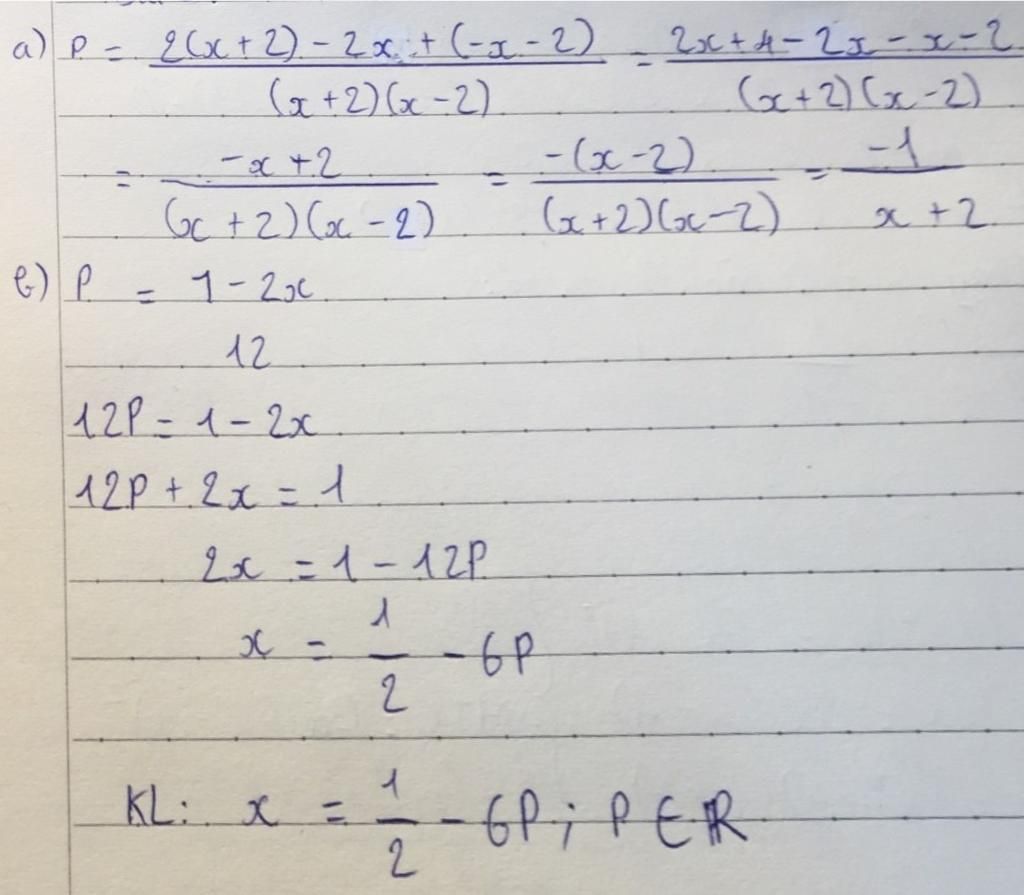 a) P = \frac{2(x+2) - 2x + (-x-2)}{(x+2)(x-2)} = \frac{2x+4-2x-x-2}{(x+2)(x-2)}
= \frac{-x+2}{(x+2)(x-2)} = \frac{-(x-2)}{(x+2)(x-2)} = \frac{-1}{x+2}
b) P = 1 - 2x
12
12P = 1 - 2x
12P + 2x = 1
2x = 1 - 12P
x = \frac{1}{2} - 6P
KL: x = \frac{1}{2} - 6P; P ∈ ℝ